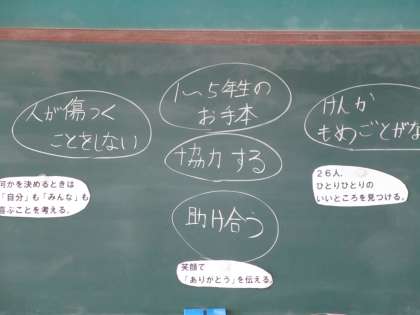 人が傷つく
ことをしない
1〜5年生の
お手本
協力する
助け合う
けんか
もめごとがな
何かを決めるときは
「自分」も「みんな」も
喜ぶことを考える。
笑顔で
「ありがとう」を伝える。
26人、
ひとりひとりの
いいところを見つける。